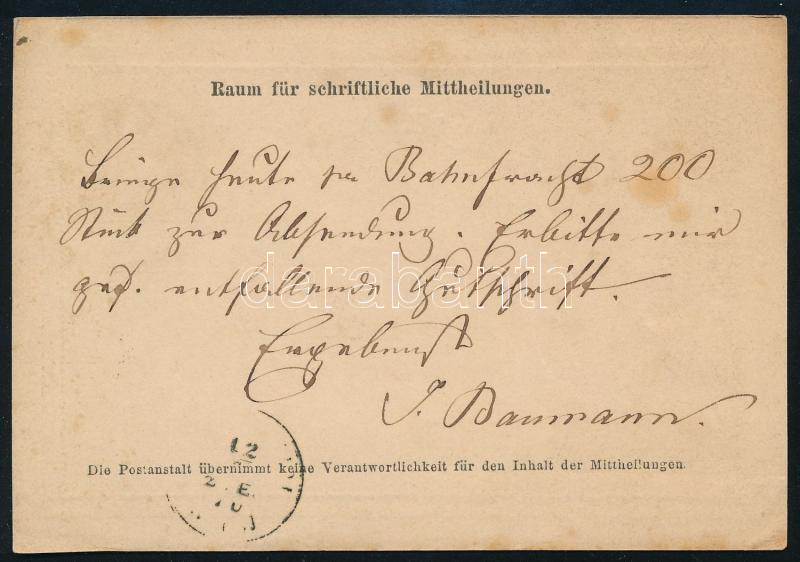 Raum für schriftliche Mittheilungen.
Bringe heute per Bahnfracht 200
Stück zur Absendung. Erbitte mir
gef. entfallende Gutschrift.
darabanth
Ergebenst
J. Baumann.
12
2
Die Postanstalt übernimmt keine Verantwortlichkeit für den Inhalt der Mittheilungen.